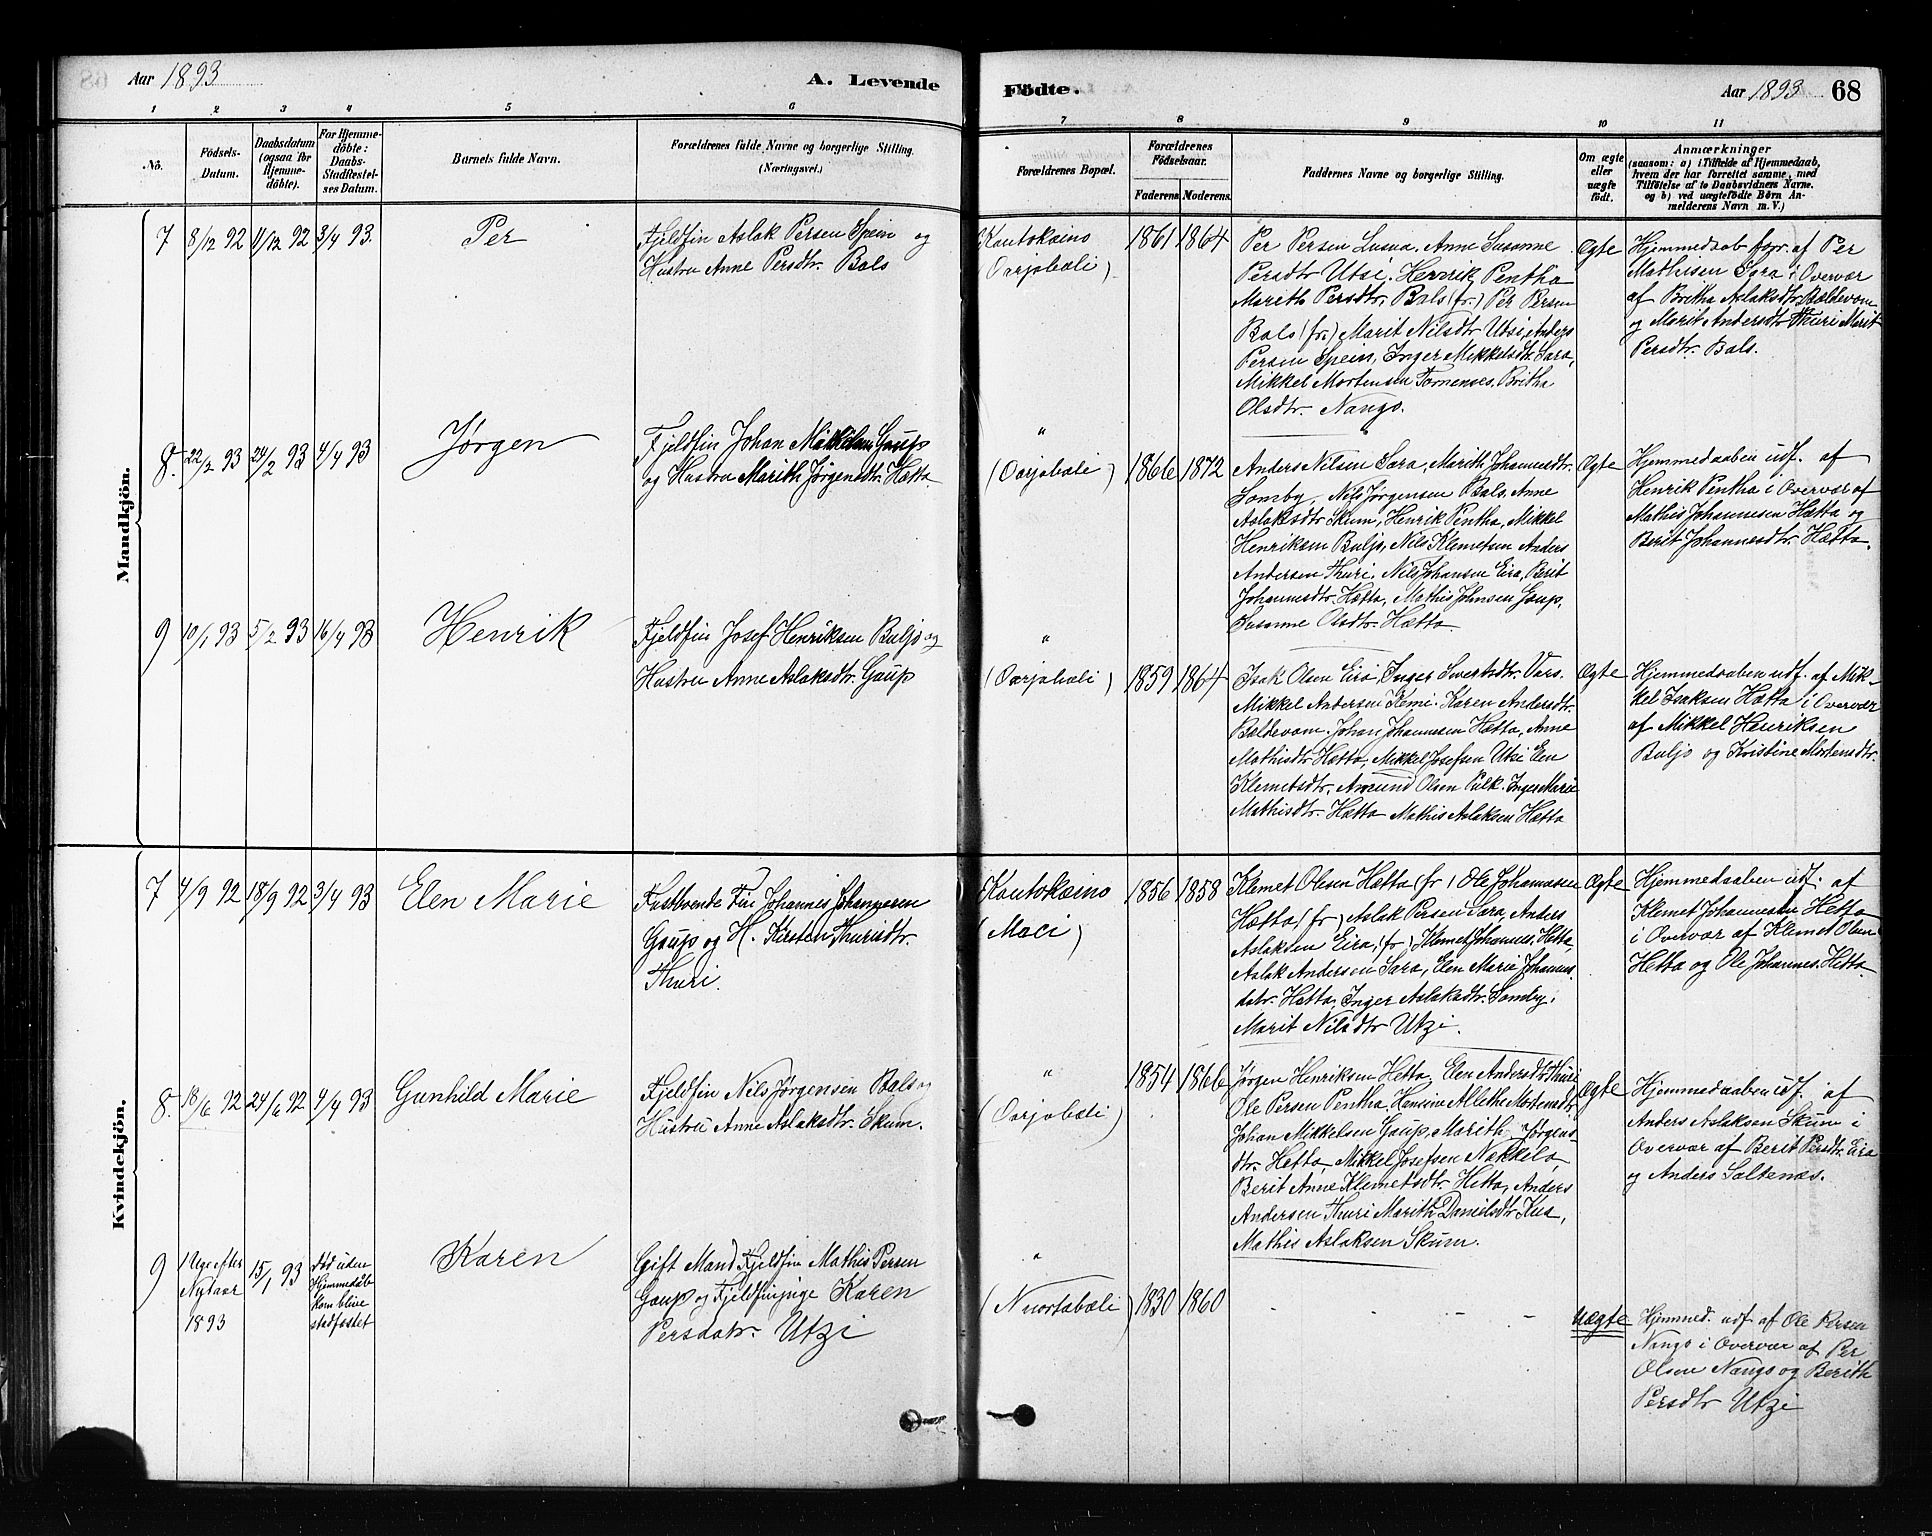 Aar 1893
A. Levende
Födte.
Aar 1893
68
1 2 3 4 5 6 7 8 9 10 11
No.
Födsels-
Datum.
Daabsdatum
(ogsaa for
Hjemme-
döbte).
For Hjemme-
döbte:
Daabs-
Stadfæstel-
ses Datum.
Barnets fulde Navn.
Forældrenes fulde Navne og borgerlige Stilling.
(Næringsvei.)
Forældrenes Bopæl.
Forældrenes
Födselsaar.
Faderens Moderens.
Faddernes Navne og borgerlige Stilling.
Om ægte
eller
uægte
födt.
Anmærkninger
(saasom: a) i Tilfælde af Hjemmedaab,
hvem der har forrettet samme, med
Tilföielse af to Daabsvidners Navne.
og b) ved uægtefödte Börn An-
melderens Navn m. V.)
Mandkjön.
7 8/12 92 11/12 92 3/4 93.
Per
Fjeldfin Aslak Persen Spein og
Hustru Anne Persdtr. Bals
Kautokeino
(Oarjobæli)
1861 1864
Per Persen Lusua, Anne Susanne
Persdtr Utsi. Henrik Pentha
Marith Persdtr. Bals (fr.) Per Persen
Bals (fr.) Marit Nilsdtr Utsi, Anders
Persen Spein, Inger Mikkelsdtr. Sara,
Mikkel Mortensen Tornenses. Britha
Olsdtr. Nango.
Ægte
Hjemmedaab fgr. af Per
Mathisen Sara i Overvær
af Britha Aslaksdtr. Bældevom
og Marit Andersdtr Thuri Marit
Persdtr. Bals.
8. 22/2 93 24/2 93 4/4 93
Jørgen
Fjeldfin Johan Mikkelsen Gaup
og Hustru Marith Jørgensdtr. Hætta
"
(Oarjobæli)
1866 1872
Anders Nilsen Sara, Marith Johannesdtr.
Somby, Nils Jørgensen Bals, Anne
Aslaksdtr Skum, Henrik Pentha, Mikkel
Henriksen Buljo, Nils Klemetsen Anders
Andersen Thuri, Nils Johansen Eira, Berit
Johannesdtr. Hætta, Mathis Johnsen Gaup,
Susanne Olsdtr. Hætta.
Ægte
Hjemmedaaben udf. af
Henrik Pentha i Overvær af
Mathis Johannesen Hætta og
Berit Johannesdtr. Hætta.
9 10/1 93 5/2 93 16/4 93
Henrik
Fjeldfin Josef Henriksen Buljo og
Hustru Anne Aslaksdtr. Gaup
"
(Oarjobæli)
1859 1864
Isak Olsen Eira, Inger Sivertsdtr. Vars.
Mikkel Andersen Kemi. Karen Andersdtr.
Bældevom. Johan Johannesen Hætta, Anne
Mathisdtr Hætta, Mikkel Josefsen Utsi Elen
Klemetsdtr. Amund Olsen Pulk. Inger Marie
Mathisdtr. Hætta Mathis Aslaksen Hætta
Ægte
Hjemmedaaben udf. af Mik-
kel Isaksen Hætta i Overvær
af Mikkel Henriksen
Buljo og Kristine Mortensdtr.
Kvindekjön.
7 4/9 92 18/9 92 3/4 93
Elen Marie
Fastboende Fin Johannes Johannesen
Gaup og H. Kirsten Thurisdtr.
Thuri.
Kautokeino
(Maci)
1856 1858
Klemet Olsen Hætta (fr) Ole Johannesen
Hætta (fr) Aslak Persen Sara, Anders
Aslaksen Eira, (fr) Klemet Johannes. Hætta,
Aslak Andersen Sara, Elen Marie Johannes-
datr. Hætta, Inger Aslaksdtr. Somby,
Marit Nilsdtr Utzi.
Ægte
Hjemmedaaben udf. af
Klemet Johannesen Hetta
i Overvær af Klemet Olsen
Hetta og Ole Johannes. Hetta
8. 18/6 92 24/6 92 9/4 93
Gunhild Marie
Fjeldfin Nils Jørgensen Bals og
Hustru Anne Aslaksdtr. Skum.
"
(Oarjobæli)
1854 1866
Jørgen Henriksen Hetta, Elen Andersdtr Thuri
Ole Persen Pentha, Hansine Alethe Mortensdtr.
Johan Mikkelsen Gaup, Marith Jørgens-
dtr. Hetta, Mikkel Josefsen Nækkelo,
Berit Anne Klemetsdtr. Hetta, Anders
Andersen Thuri Marith Danielsdtr Kua,
Mathis Aslaksen Skum.
Ægte
Hjemmedaaben udf. af
Anders Aslaksen Skum i
Overvær af Berit Persdtr. Eira
og Anders Saltenæs.
9 1 Uge efter
Nytaar
1893
15/1 93
død uden
Hjemmedåb
kom blive
stadfæstet
Karen
Gift Mand Fjeldfin Mathis Persen
Gaup og Fjeldfinpige Karen
Persdatr. Utzi
"
(Nuortabæli)
1830 1860
- - - -
Uægte
Hjemmed. udf. af Ole Persen
Nango i Overvær af Per
Olsen Nango og Berith
Persdtr Utzi